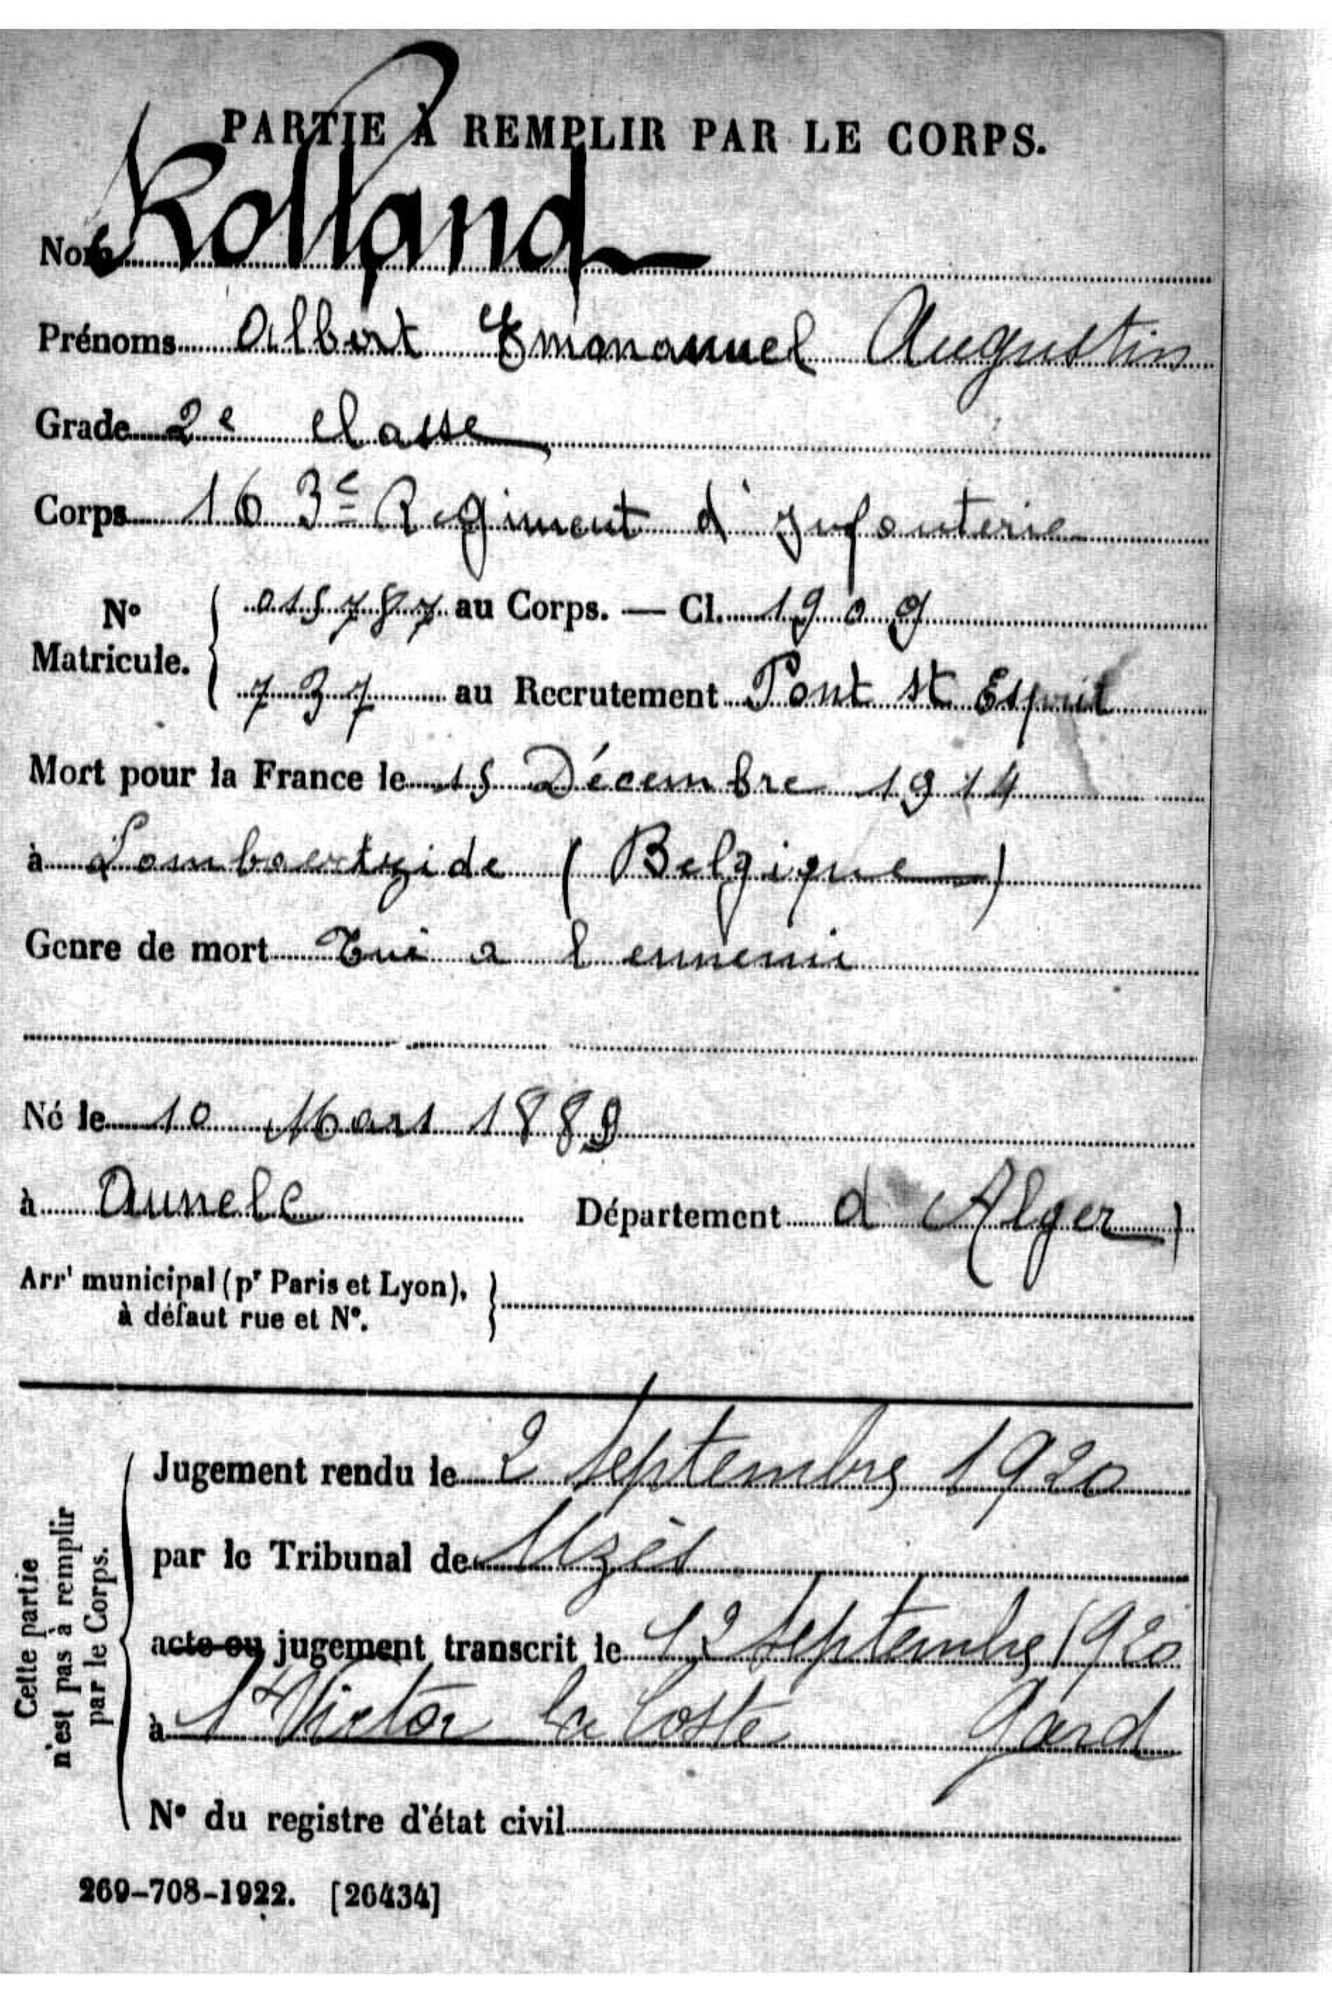 PARTIE À REMPLIR PAR LE CORPS.
Nom Rolland
Prénoms Albert Emmanuel Augustin
Grade 2e classe
Corps 163e Regiment d'Infanterie
N° Matricule. { 015787 au Corps. — Cl. 1909
737 au Recrutement Pont St Esprit
Mort pour la France le 15 Décembre 1914
à Lombaertzide (Belgique)
Genre de mort Tué a l ennemi
Né le 10 Mars 1889
à Aumele Département d Alger)
Arrt municipal (pr Paris et Lyon), à défaut rue et N°. }
Cette partie n'est pas à remplir par le Corps.
Jugement rendu le 2 Septembre 1920
par le Tribunal de Uzès
acte ou jugement transcrit le 12 Septembre 1920
à St Victor la Coste Gard
N° du registre d'état civil
269-708-1922. [26434]